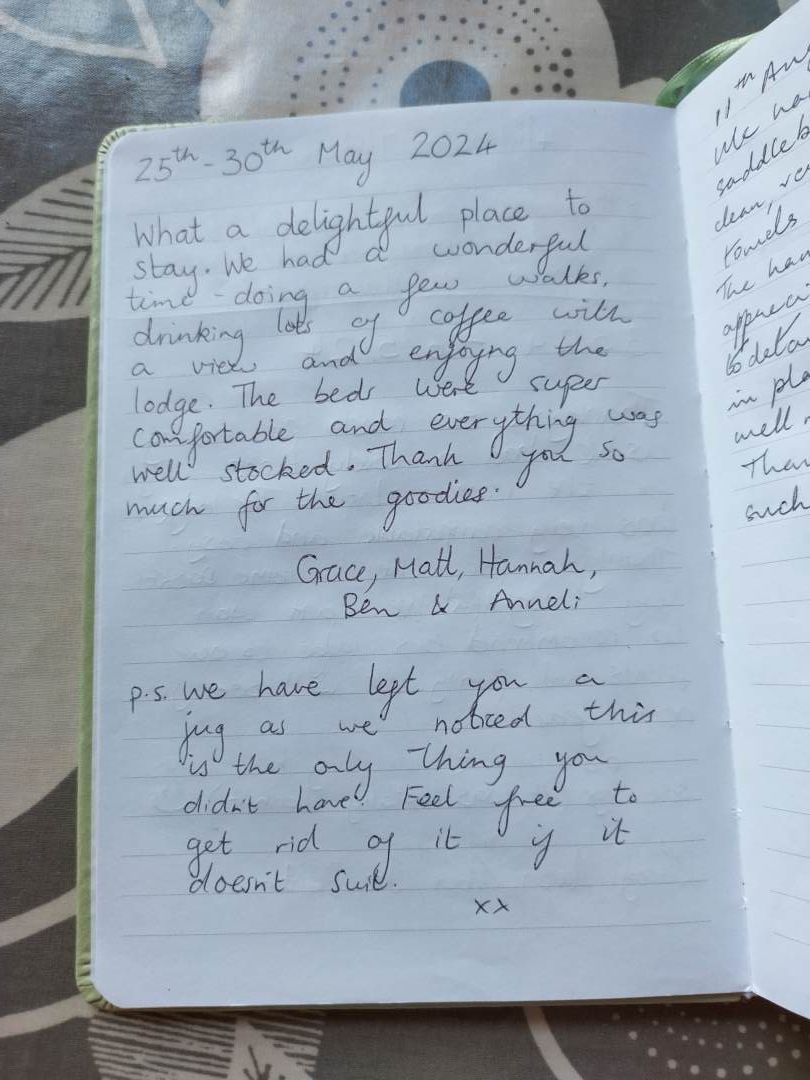 25th - 30th May 2024
What a delightful place to
stay. We had a wonderful
time - doing a few walks,
drinking lots of coffee with
a view and enjoyng the
lodge. The beds were super
comfortable and everything was
well stocked. Thank you so
much for the goodies.
Grace, Matt, Hannah,
Ben & Anneli
p.s. we have left you a
jug as we noticed this
is the only thing you
didn't have! Feel free to
get rid of it if it
doesn't suit.
xx
11th Aug
We
clean,
towels
The
in
well
such